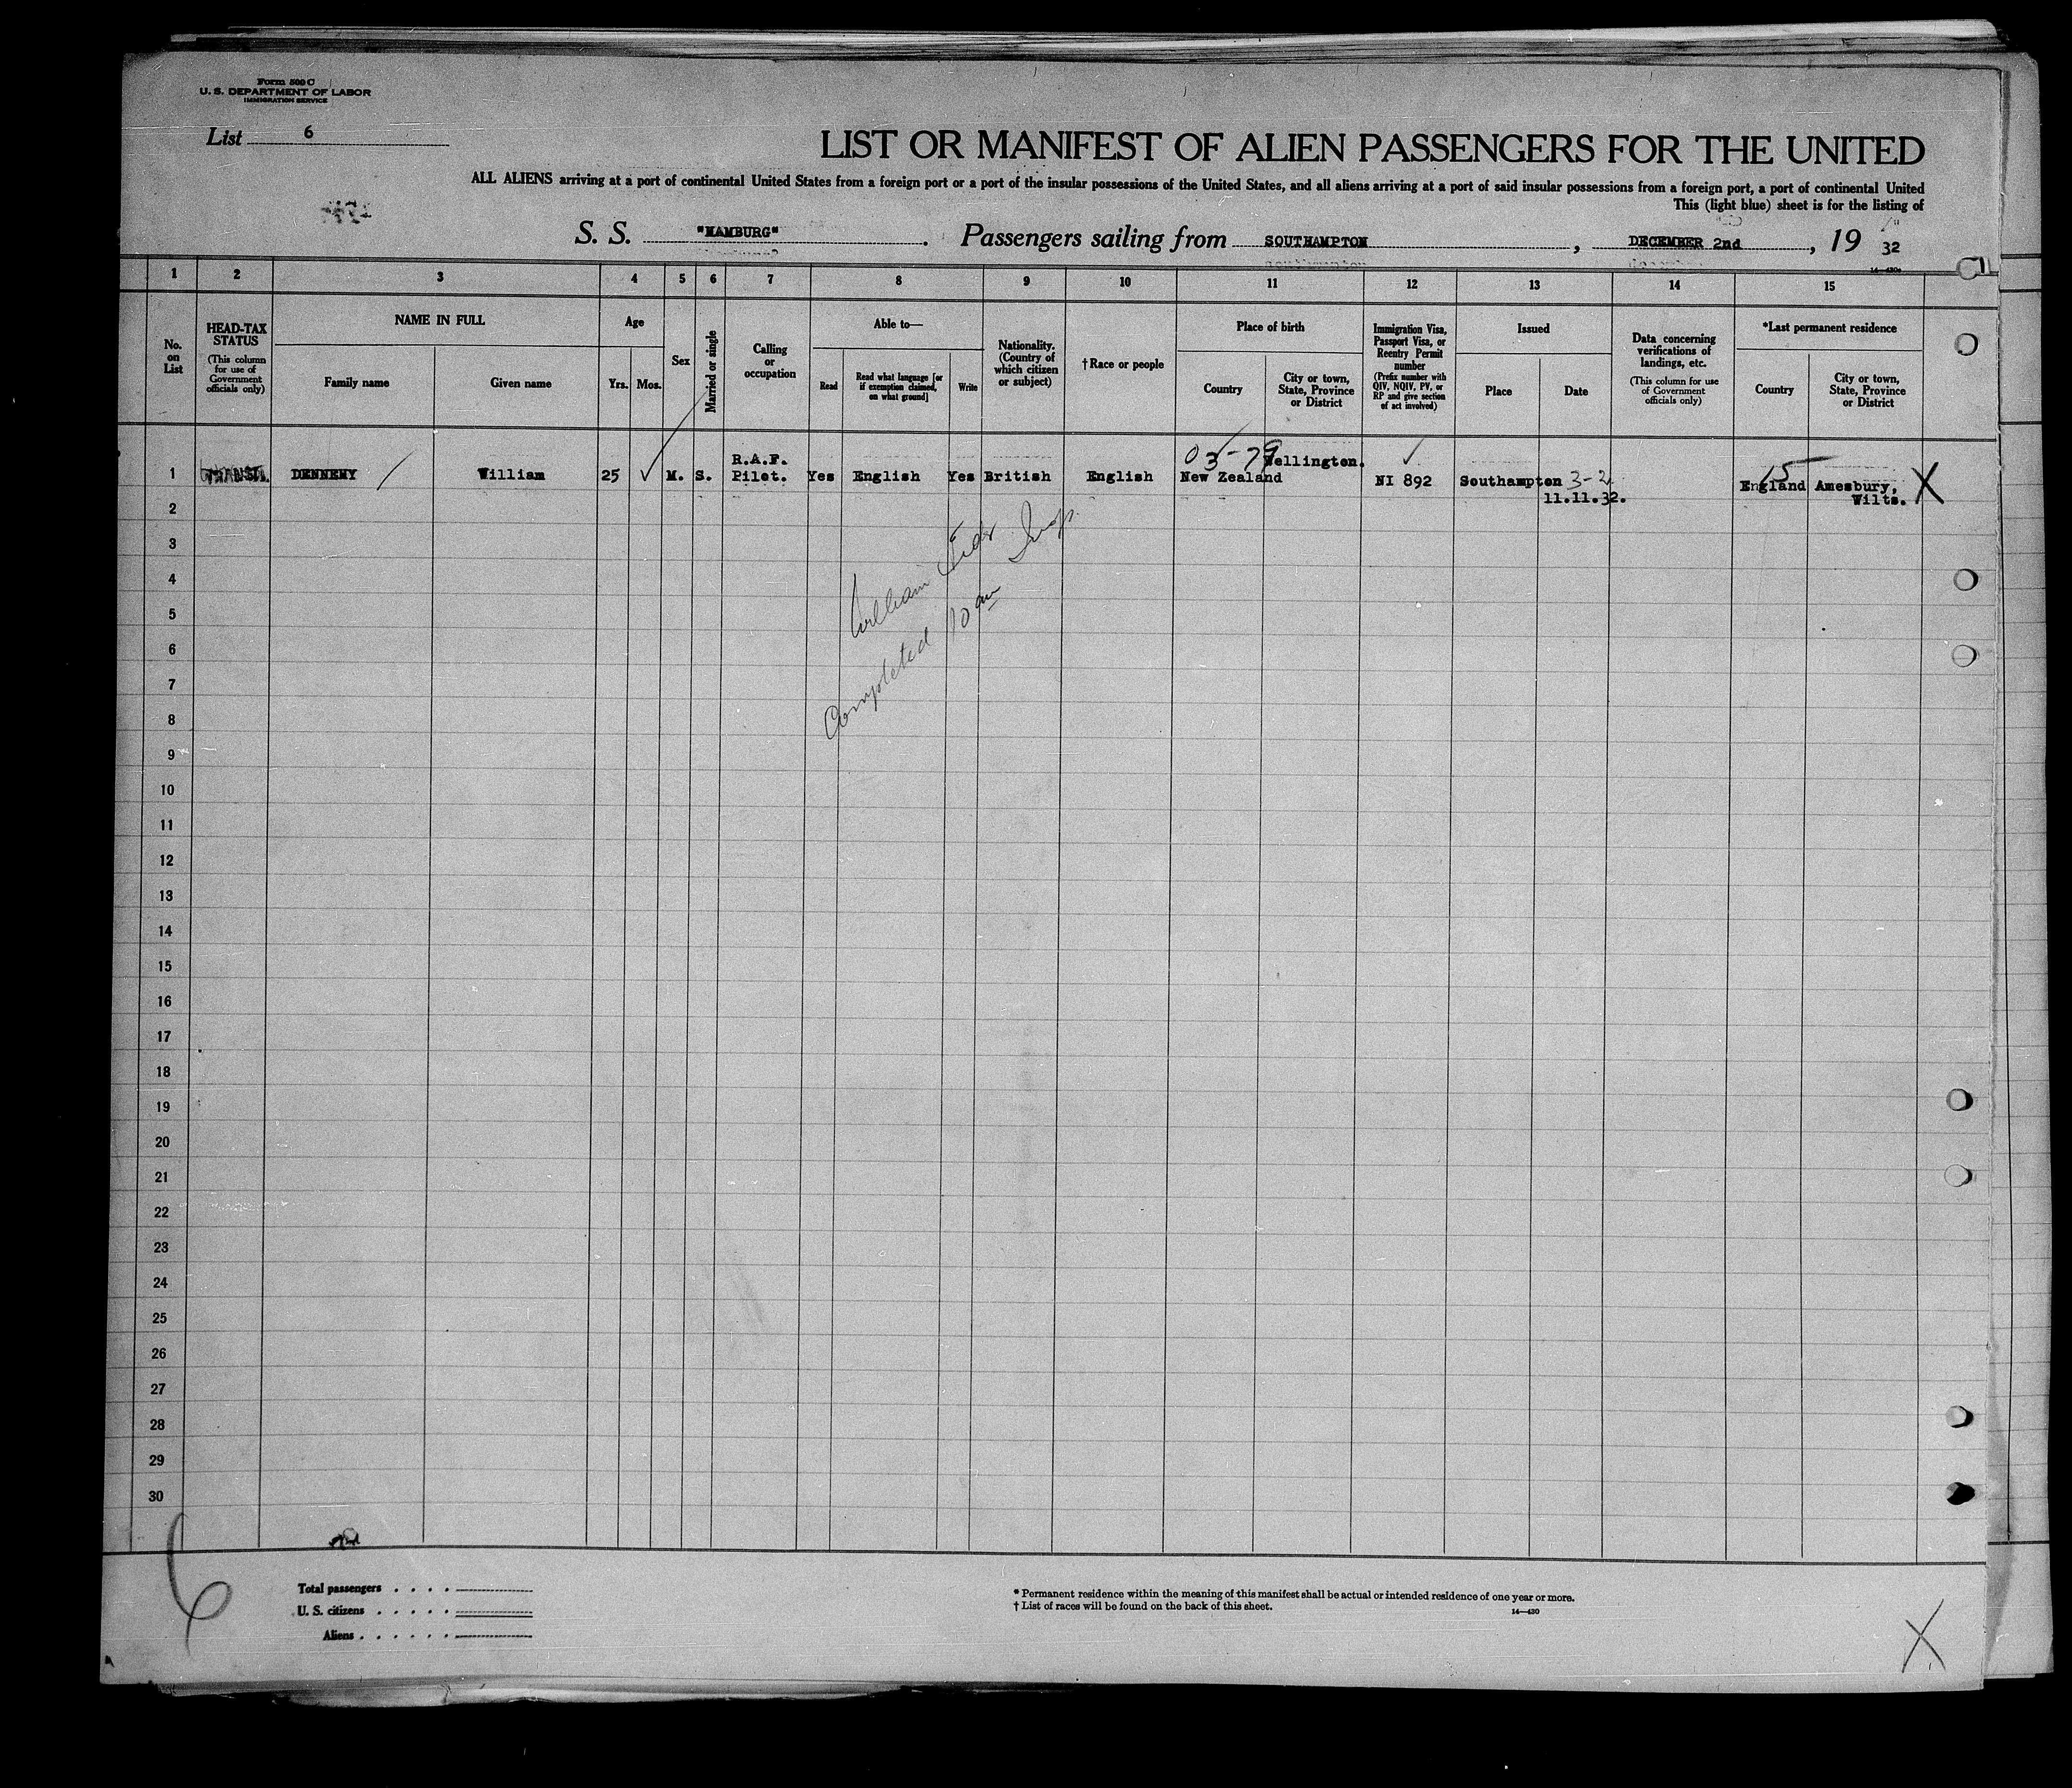 Form 500 C
U. S. DEPARTMENT OF LABOR
IMMIGRATION SERVICE
List 6
LIST OR MANIFEST OF ALIEN PASSENGERS FOR THE UNITED
ALL ALIENS arriving at a port of continental United States from a foreign port or a port of the insular possessions of the United States, and all aliens arriving at a port of said insular possessions from a foreign port, a port of continental United
This (light blue) sheet is for the listing of
S. S. "HAMBURG". Passengers sailing from SOUTHAMPTON, DECEMBER 2nd, 19 32
1 2 3 4 5 6 7 8 9 10 11 12 13 14 15
No. on List
HEAD-TAX STATUS
(This column for use of Government officials only)
NAME IN FULL
Family name
Given name
Age
Yrs.
Mos.
Sex
Married or single
Calling or occupation
Able to—
Read
Read what language [or if exemption claimed, on what ground]
Write
Nationality. (Country of which citizen or subject)
†Race or people
Place of birth
Country
City or town, State, Province or District
Immigration Visa, Passport Visa, or Reentry Permit number
(Prefix number with QIV, NQIV, PV, or RP and give section of act involved)
Issued
Place
Date
Data concerning verifications of landings, etc.
(This column for use of Government officials only)
*Last permanent residence
Country
City or town, State, Province or District
03-79
1 TRANSIT. DENNEHY William 25 M. S. R.A.F. Pilot. Yes English Yes British English New Zealand Wellington. NI 892 Southampton 3-2 11.11.32. 15 England Amesbury, Wilts. X
2
3
4
5
6
7
8
9
10
11
12
13
14
15
16
17
18
19
20
21
22
23
24
25
26
27
28
29
30
William Insp.
Completed 10 am
6
Total passengers
U. S. citizens
Aliens
* Permanent residence within the meaning of this manifest shall be actual or intended residence of one year or more.
† List of races will be found on the back of this sheet.
14—430
X